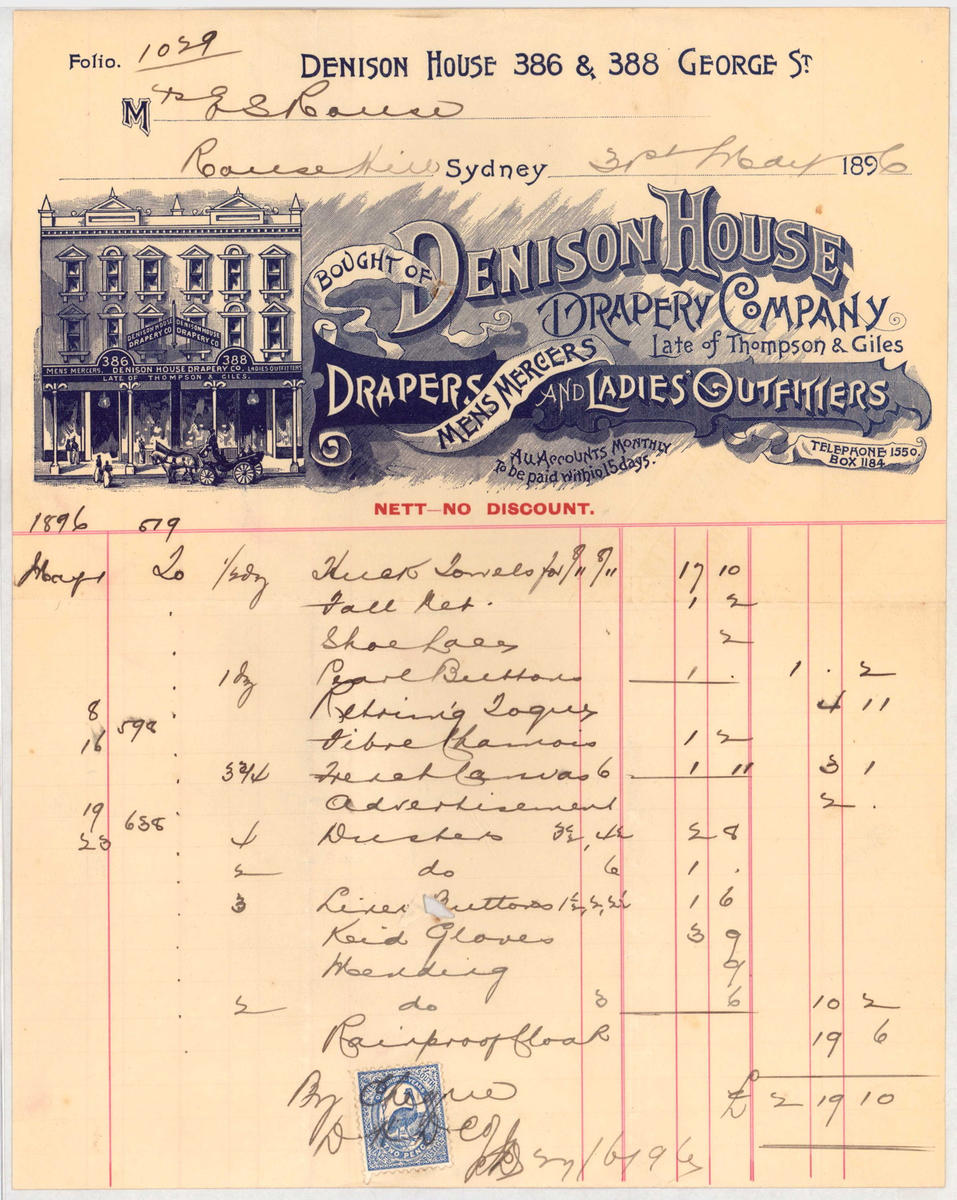 Folio. 1029
DENISON HOUSE 386 & 388 GEORGE ST
Mrs E S Rouse
Rouse Hill Sydney 31st May 1896
BOUGHT OF DENISON HOUSE
DRAPERY COMPANY
Late of Thompson & Giles
DRAPERS MENS MERCERS AND LADIES' OUTFITTERS
All Accounts Monthly
To be paid within 15 days.
TELEPHONE 1550.
BOX 1184
DENISON HOUSE DRAPERY CO
DENISON HOUSE DRAPERY CO
386 388
MENS MERCERS. DENISON HOUSE DRAPERY CO. LADIES OUTFITTERS
LATE OF THOMPSON & GILES.
NETT—NO DISCOUNT.
1896 519
May 1 20 1/2 dz Huck Towels for 8/11 8/11 17 10
Fall Net. 1 2
Shoe Laces 2
1 dz Pearl Buttons 1 . 1 . 2
8 Retrim'g Toques 4 11
16 598 Fibre Chamois 1 2
3 3/4 French Canvas 6 1 11 3 1
19 Advertisement 2 .
23 638 4 Dusters 3½, 4½ 2 8
2 do 6 1 .
3 Linen Buttons 1½, 2, 2½ 1 6
Keid Gloves 3 9
Mending 9
2 do 3 6 10 2
Rainproof Cloak 19 6
£ 2 19 10
By Cheque
D H D Co
TWO PENCE
27/6/96